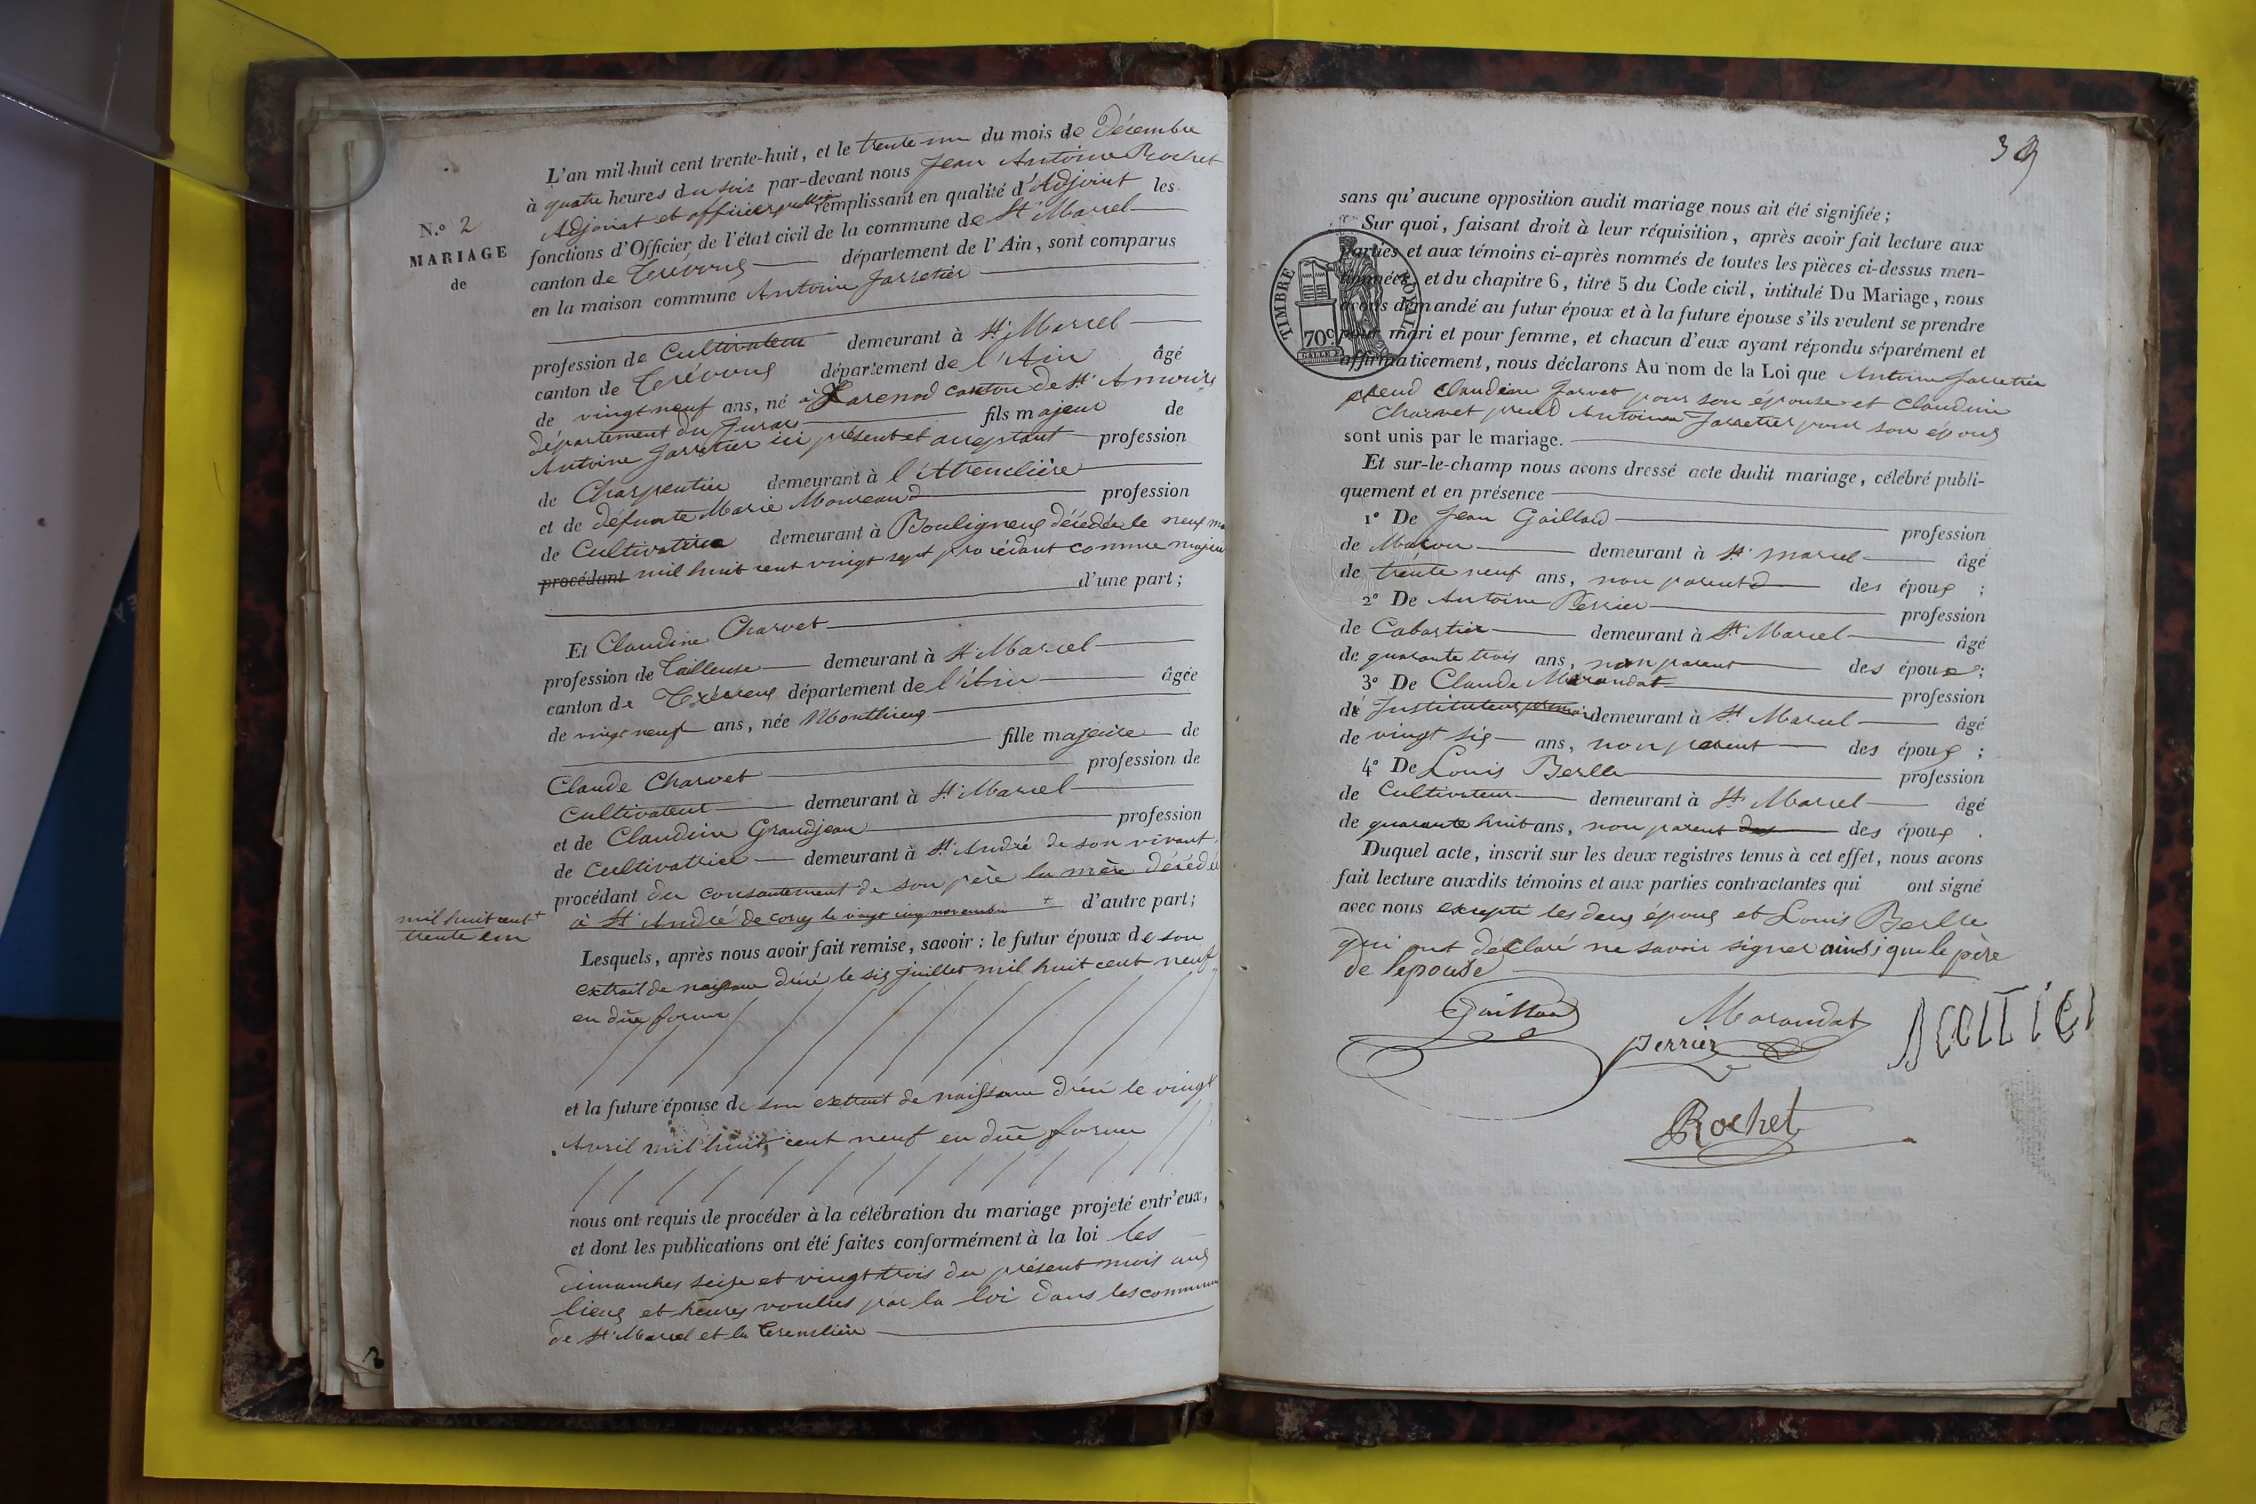 L'an mil huit cent trente-huit, et le trente un du mois de Décembre
à quatre heures du soir par-devant nous Jean Antoine Rochet
Adjoint et officier public remplissant en qualité d'Adjoint les
fonctions d'Officier de l'état civil de la commune de St Marcel
canton de Trévoux département de l'Ain, sont comparus
en la maison commune Antoine Jarretier
N.º 2
MARIAGE
de
profession de Cultivateur demeurant à St Marcel
canton de Trévoux département de l'Ain âgé
de vingt neuf ans, né à canton de St Amour
département du Jura fils majeur de
Antoine Jarretier ici présent et acceptant profession
de Charpentier demeurant à
et de défunte Marie profession
de Cultivatrice demeurant à Bouligneux décédée le neuf
procédant mil huit cent vingt sept procédant comme majeur
d'une part;
Et Claudine Charvet
profession de Tailleuse demeurant à St Marcel
canton de Trévoux département de l'Ain âgée
de vingt neuf ans, née Monthieux
fille majeure de
Claude Charvet profession de
Cultivateur demeurant à St Marcel
et de Claudine Grandjean profession
de Cultivatrice demeurant à St André de son vivant
procédant du consantement de son père la mère décédée
à St André de corcy le vingt cinq novembre + d'autre part;
mil huit cent +
trente un
Lesquels, après nous avoir fait remise, savoir: le futur époux de son
extrait de naissance le six juillet mil huit cent neuf
en due forme
et la future épouse de son extrait de naissance le vingt
Avril mil huit cent neuf en due forme
nous ont requis de procéder à la célébration du mariage projeté entr'eux,
et dont les publications ont été faites conformément à la loi les
dimanches seize et vingt trois du présent mois aux
lieux et heures voulus par la loi dans les
de St Marcel et la
39
sans qu'aucune opposition audit mariage nous ait été signifiée;
Sur quoi, faisant droit à leur réquisition, après avoir fait lecture aux
parties et aux témoins ci-après nommés de toutes les pièces ci-dessus men-
tionnées, et du chapitre 6, titre 5 du Code civil, intitulé Du Mariage, nous
avons demandé au futur époux et à la future épouse s'ils veulent se prendre
pour mari et pour femme, et chacun d'eux ayant répondu séparément et
affirmativement, nous déclarons Au nom de la Loi que Antoine Jarretier
prend Claudine Jarvet pour son épouse et Claudine
Charvet prend Antoine Jarretier pour son époux
TIMBRE ROYAL
70c
sont unis par le mariage.
Et sur-le-champ nous avons dressé acte dudit mariage, célébré publi-
quement et en présence
1º De Jean Gaillard profession
de Maçon demeurant à St marcel âgé
de trente neuf ans, non parent des époux ;
2º De Antoine Perrier profession
de Cabartier demeurant à St Marcel âgé
de quarante trois ans, non parent des époux ;
3º De Claude Marandat profession
de Instituteur primaire demeurant à St Marcel âgé
de vingt six ans, non parent des époux ;
4º De Louis Berlle profession
de Cultivateur demeurant à St Marcel âgé
de quarante huit ans, non parent des des époux .
Duquel acte, inscrit sur les deux registres tenus à cet effet, nous avons
fait lecture auxdits témoins et aux parties contractantes qui ont signé
avec nous excepté les deux époux et Louis Berlle
qui ont déclaré ne savoir signer ainsi que le père
de l'épouse
Gaillard
Marandat
Perrier
Rochet